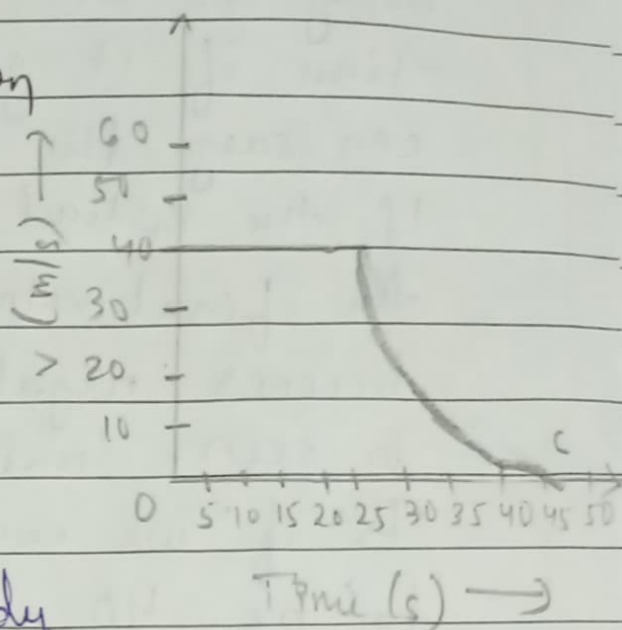 60
50
40
30
V (m/s) →
20
10
C
0 5 10 15 20 25 30 35 40 45 50
Time (s) →